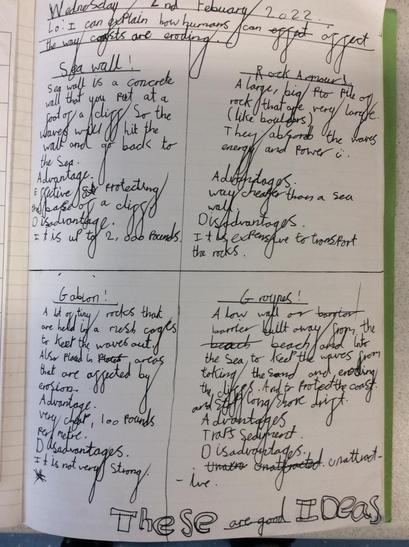 Wednesday 2nd Febuary 2022.
Lo: I can explain how humans can affect
the way coasts are eroding.
Sea wall!
Sea wall is a concrete
wall that you put at a
foot of a cliff so the
waves will hit the
wall and go back to
the Sea.
Advantage.
Effective at Protecting
the base of a cliff
Disadvantage.
It is up to 2,000 Pounds
Rock Armour!
A large, big Pile of
rock that are very large.
(like boulders)
They absorb the waves
energy and Power
Advantages.
way cheaper than a sea
wall
Disadvantages.
It is expensive to transport
the rocks.
Gabion!
A lot of tiny rocks that
are held in a mesh cages
to keep the waves out
Also Placed in areas
that are affected by
erosion.
Advantage.
Very cheap, 100 Pounds
Per metre.
Disadvantages.
It is not very Strong.
Groynes!
A low wall or barrier
barrier built away from the
beach beach and into
the Sea to keep the waves from
taking the sand and eroding
the cliffs. And to Protect the coast.
and Stop long shore drift.
Advantages
Traps Sediment.
Disadvantages.
Unattract-
-ive.
These are good IDeas